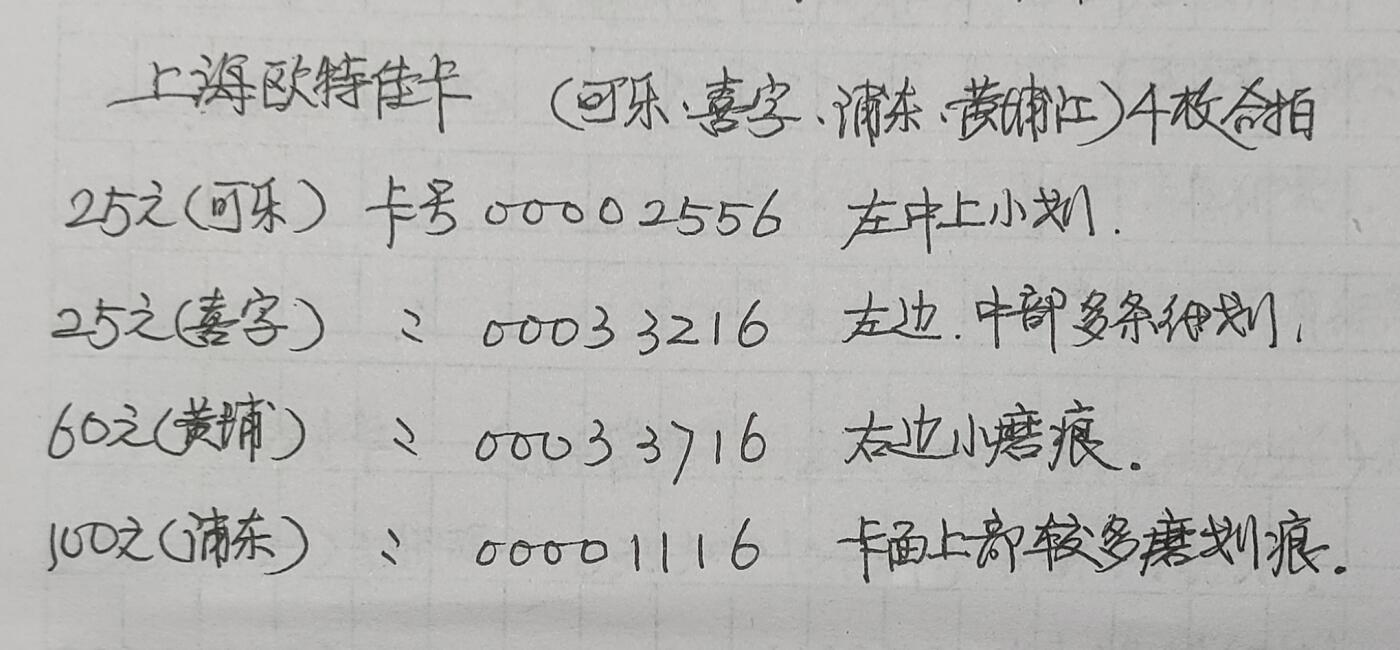 上海欧特佳卡 (可乐·喜字、浦东·黄浦江)4枚合拍
25元(可乐) 卡号00002556 左中上小划.
25元(喜字) 〃 00033216 左边.中部多条细划,
60元(黄埔) 〃 00033716 右边小磨痕。
100元(浦东) 〃 00001116 卡面上部较多磨划痕。